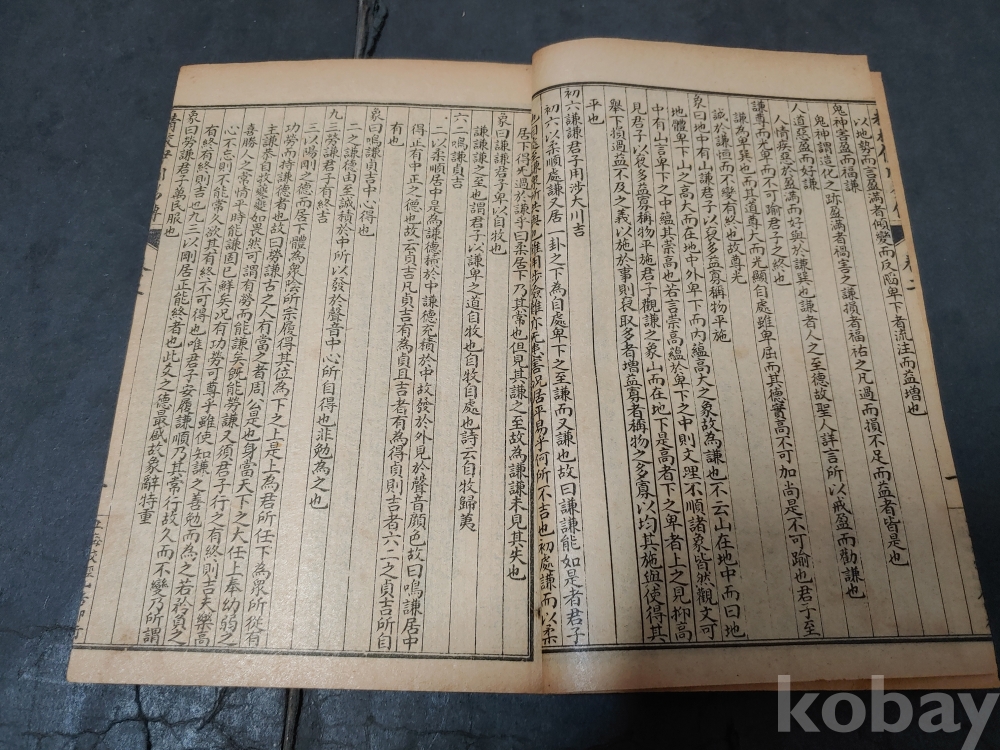 以地勢而言盈滿者傾變而反陷卑下者流注而益增也
鬼神害盈而福謙
鬼神謂造化之跡盈滿者禍害之謙損者福祐之凡過而損不足而益者皆是也
人道惡盈而好謙
人情疾惡於盈滿而好與於謙巽也謙者人之至德故聖人詳言所以戒盈而勸謙也
謙尊而光卑而不可踰君子之終也
謙為卑巽也而其道尊大而光顯自處雖卑屈而其德實高不可加尚是不可踰也君子至
誠於謙恒而不變有終也故尊光
象曰地中有山謙君子以裒多益寡稱物平施
地體卑下山之高大而在地中外卑下而內蘊高大之象故為謙也不云山在地中而曰地
中有山言卑下之中蘊其崇高也若言崇高蘊於卑下之中則文理不順諸象皆然觀文可
見君子以裒多益寡稱物平施君子觀謙之象山而在地下是高者下之卑者上之見抑高
舉下損過益不及之義以施於事則裒取多者增益寡者稱物之多寡以均其施與使得其
平也
初六謙謙君子用涉大川吉
初六以柔順處謙又居一卦之下為自處卑下之至謙而又謙也故曰謙謙能如是者君子
也自處至謙眾所共與也雖用涉險難亦无患害況居平易乎何所不吉也初處謙而以柔
居下得无過於謙乎曰柔居下乃其常也但見其謙之至故為謙謙未見其失也
象曰謙謙君子卑以自牧也
謙謙謙之至也謂君子以謙卑之道自牧也自牧自處也詩云自牧歸荑
六二鳴謙貞吉
二以柔順居中是為謙德積於中謙德充積於中故發於外見於聲音顏色故曰鳴謙居中
得正有中正之德也故云貞吉凡貞吉有為貞且吉者有為得貞則吉者六二之貞吉所自
有也
象曰鳴謙貞吉中心得也
二之謙德由至誠積於中所以發於聲音中心所自得也非勉為之也
九三勞謙君子有終吉
三以陽剛之德而居下體為眾陰所宗履得其位為下之上是上為君所任下為眾所從有
功勞而持謙德者也故曰勞謙古之人有當之者周公是也身當天下之大任上奉幼弱之
主謙恭自牧夔夔如畏然可謂有勞而能謙矣既能勞謙又須君子行之有終則吉夫樂高
喜勝人之常情平時能謙固已鮮矣況有功勞可尊乎雖使知謙之善勉而為之若矜負之
心不忘則不能常久欲其有終不可得也唯君子安履謙順乃其常行故久而不變乃所謂
有終有終則吉也九三以剛居正能終者也此爻之德最盛故象辭特重
象曰勞謙君子萬民服也
kobay